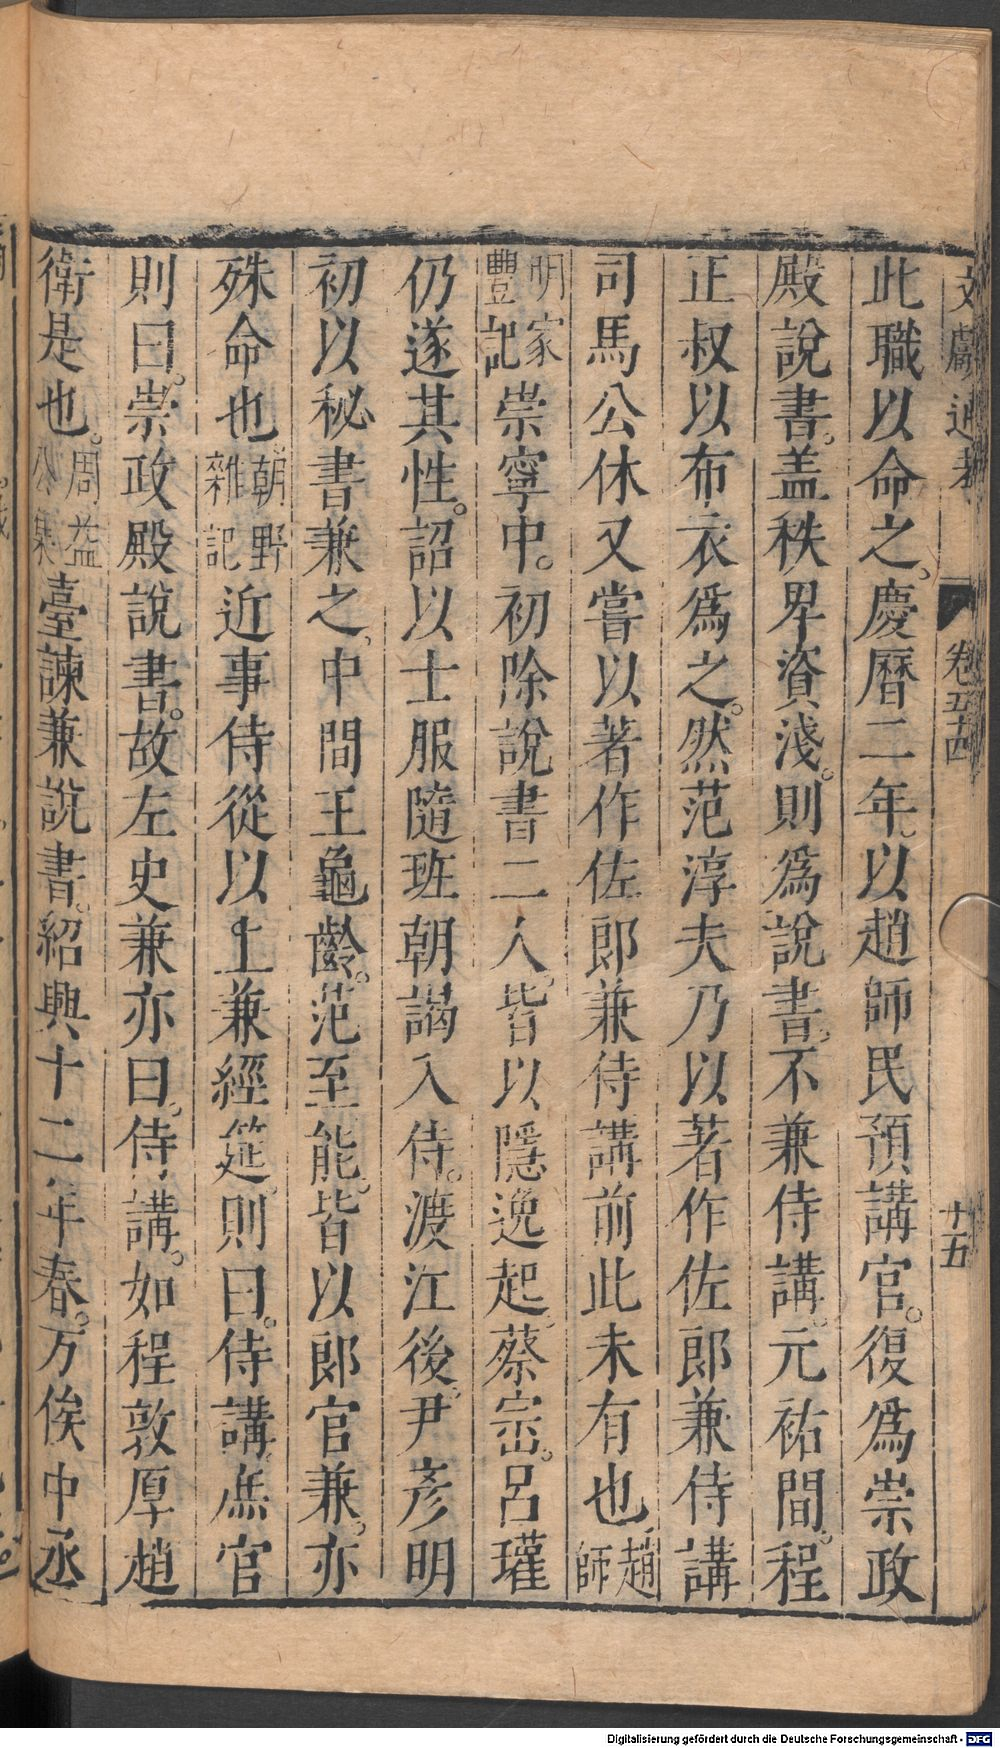 文獻通考 卷五十四 十五
此職以命之、慶曆二年。以趙師民預講官。復爲崇政
殿說書。盖秩卑資淺。則爲說書。不兼侍講。元祐間。程
正叔以布衣爲之。然范淳夫乃以著作佐郎兼侍講
司馬公休又嘗以著作佐郎兼侍講前此未有也趙師
明家豐記崇寧中。初除說書二人。皆以隱逸起。蔡崈。呂瓘
仍遂其性。詔以士服隨班朝謁入侍。渡江後。尹彥明
初以秘書兼之、中間王龜齡。范至能。皆以郎官兼。亦
殊命也朝野雜記近事侍從以上兼經筵。則曰。侍講。庶官
則曰。崇政殿說書。故左史兼亦曰。侍講。如程敦厚趙
衛是也。周益公集臺諫兼說書。紹興十二年春。万俟中丞
Digitalisierung gefördert durch die Deutsche Forschungsgemeinschaft - DFG